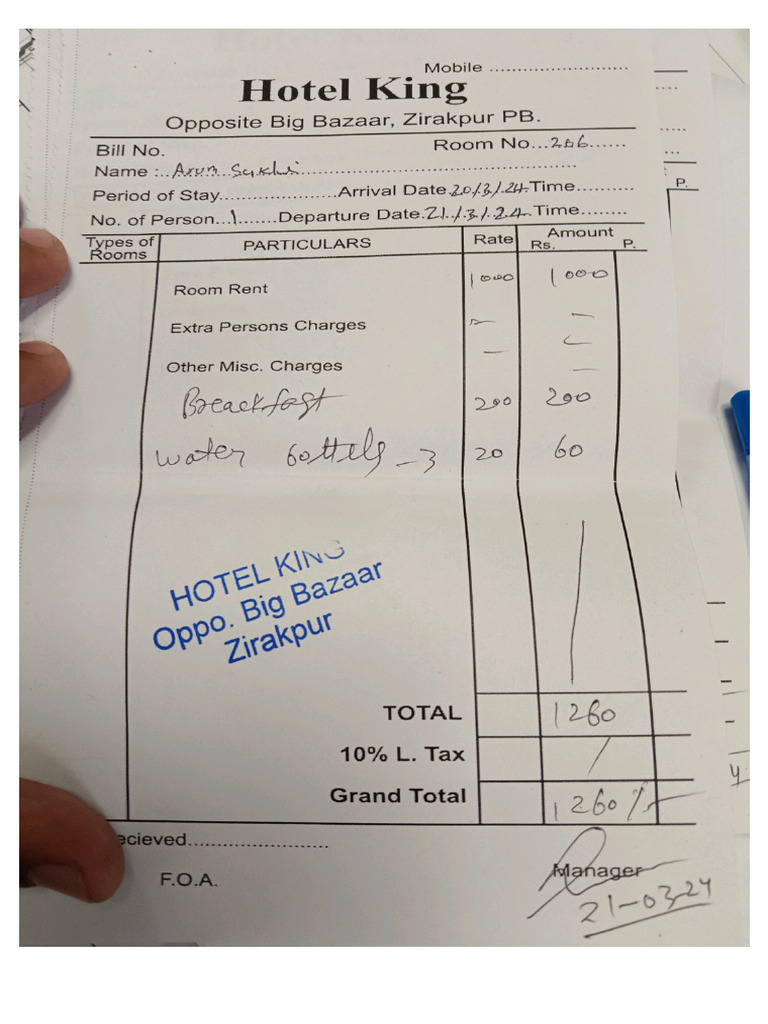 Mobile ............................
Hotel King
Opposite Big Bazaar, Zirakpur PB.
Bill No.
Room No...206......
Name :..Arun
Period of Stay.....................Arrival Date.20/3/24.Time..........
No. of Person..1.......Departure Date.21/3/24.Time........
Types of Rooms PARTICULARS Rate Amount Rs. P.
Room Rent 1000 1000
Extra Persons Charges - -
Other Misc. Charges - -
Breackfast 200 200
water bottels -3 20 60
HOTEL KING
Oppo. Big Bazaar
Zirakpur
TOTAL 1260
10% L. Tax /
Grand Total 1260/-
ecieved..........................
F.O.A.
Manager
21-03-24
P.